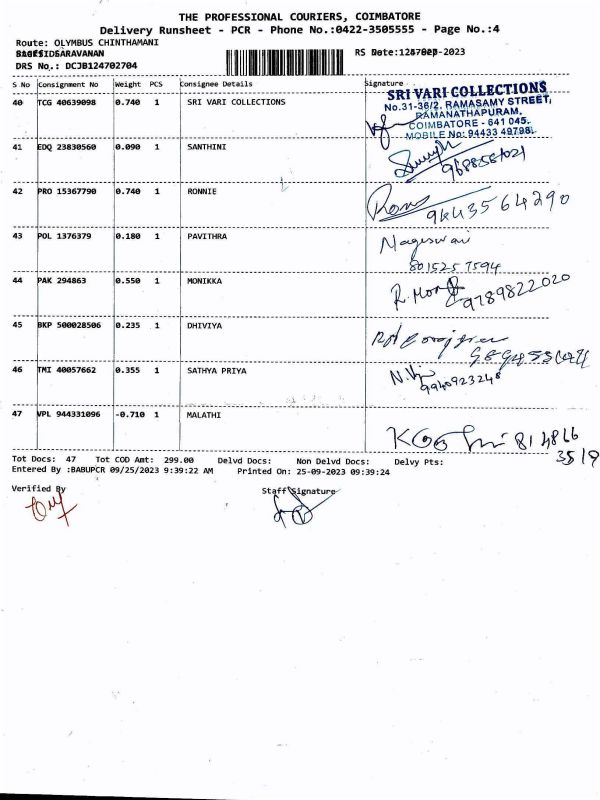 THE PROFESSIONAL COURIERS, COIMBATORE
Delivery Runsheet - PCR - Phone No.:0422-3505555 - Page No.:4
Route: OLYMBUS CHINTHAMANI
RS Date:
-2023
DRS No.: DCJB124702704
S No Consignment No Weight PCS Consignee Details Signature
40 TCG 40639098 0.740 1 SRI VARI COLLECTIONS
SRI VARI COLLECTIONS
No.31-36/2, RAMASAMY STREET,
RAMANATHAPURAM,
COIMBATORE - 641 045.
MOBILE No: 94433 49798.
41 EDQ 23830560 0.090 1 SANTHINI
42 PRO 15367790 0.740 1 RONNIE
43 POL 1376379 0.180 1 PAVITHRA
Mageswari
801525 7594
44 PAK 294863 0.550 1 MONIKKA
9789822020
45 BKP 500028506 0.235 1 DHIVIYA
46 TMI 40057662 0.355 1 SATHYA PRIYA
9940923248
47 VPL 944331096 -0.710 1 MALATHI
Tot Docs: 47 Tot COD Amt: 299.00 Delvd Docs: Non Delvd Docs: Delvy Pts:
Entered By :BABUPCR 09/25/2023 9:39:22 AM Printed On: 25-09-2023 09:39:24
Verified By Staff Signature